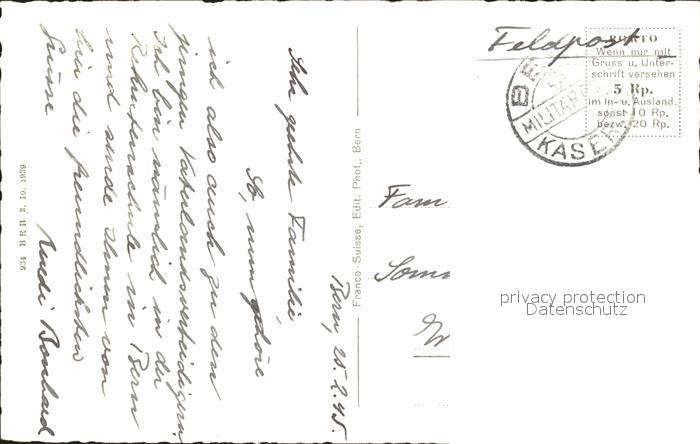 Feldpost
PORTO
Wenn nur mit
Gruss u. Unter-
schrift versehen
5 Rp.
im In- u. Ausland,
sonst 10 Rp.
bezw. 20 Rp.
BERN
MILITÄRPOST
KASERNE
Fam
Somm
privacy protection
Datenschutz
Franco-Suisse, Edit. Phot., Bern
Bern, 25.2.45.
Ihr geehrte Familie,
So, nun gehöre
ich also auch zu den
jungen Vaterlandsverteidigern.
Ich bin nämlich in der
Rekrutenschule in Bern
und sende Ihnen von
hier die freundlichsten
Grüsse
Ruedi
934 BRB 3. 10. 1939